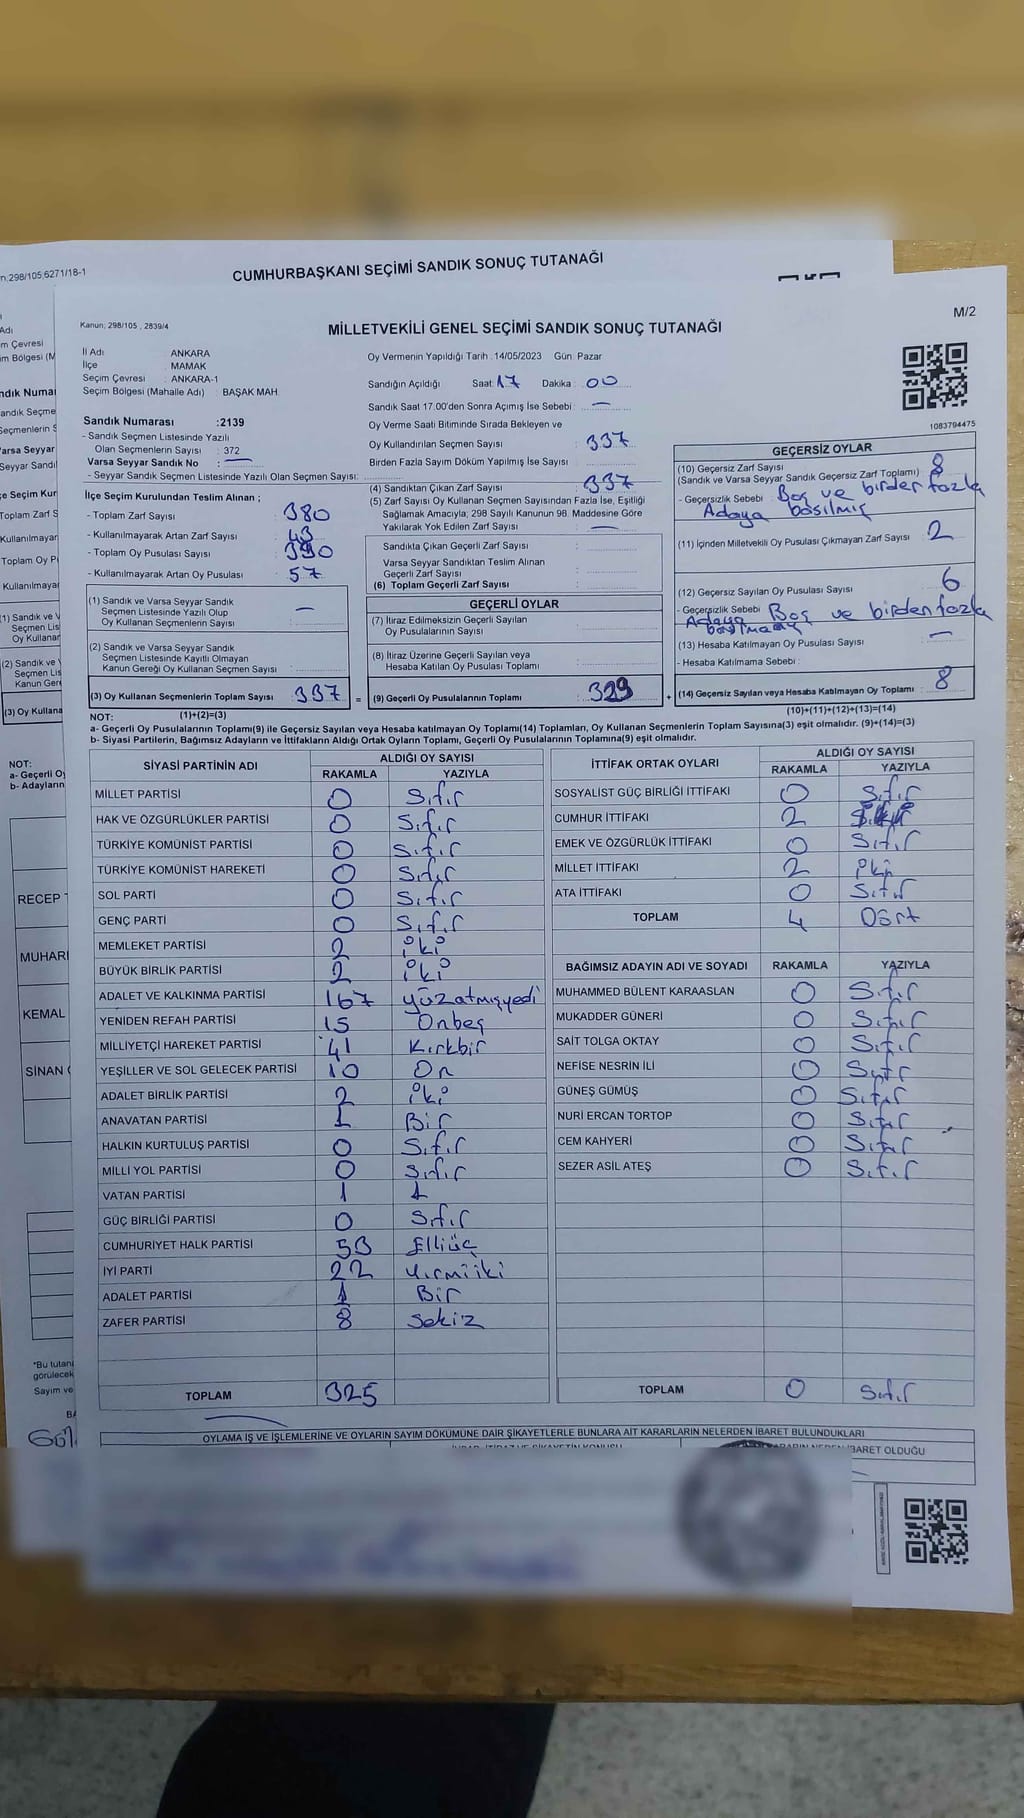 n:298/105,6271/18-1
CUMHURBAŞKANI SEÇİMİ SANDIK SONUÇ TUTANAĞI
Kanun: 298/105 , 2839/4
MİLLETVEKİLİ GENEL SEÇİMİ SANDIK SONUÇ TUTANAĞI
M/2
İl Adı : ANKARA
İlçe : MAMAK
Seçim Çevresi : ANKARA-1
Seçim Bölgesi (Mahalle Adı) : BAŞAK MAH
Sandık Numarası :2139
- Sandık Seçmen Listesinde Yazılı
Olan Seçmenlerin Sayısı : 372
Varsa Seyyar Sandık No : —
- Seyyar Sandık Seçmen Listesinde Yazılı Olan Seçmen Sayısı:
İlçe Seçim Kurulundan Teslim Alınan ;
- Toplam Zarf Sayısı : 380
- Kullanılmayarak Artan Zarf Sayısı : 43
- Toplam Oy Pusulası Sayısı :
- Kullanılmayarak Artan Oy Pusulası : 57
(1) Sandık ve Varsa Seyyar Sandık
Seçmen Listesinde Yazılı Olup
Oy Kullanan Seçmenlerin Sayısı : —
(2) Sandık ve Varsa Seyyar Sandık
Seçmen Listesinde Kayıtlı Olmayan
Kanun Gereği Oy Kullanan Seçmen Sayısı :
(3) Oy Kullanan Seçmenlerin Toplam Sayısı : 337
Oy Vermenin Yapıldığı Tarih : 14/05/2023 Gün: Pazar
Sandığın Açıldığı Saat: 17 Dakika : 00
Sandık Saat 17.00'den Sonra Açımış İse Sebebi : —
Oy Verme Saati Bitiminde Sırada Bekleyen ve
Oy Kullandırılan Seçmen Sayısı : 337
Birden Fazla Sayım Döküm Yapılmış İse Sayısı :
(4) Sandıktan Çıkan Zarf Sayısı : 337
(5) Zarf Sayısı Oy Kullanan Seçmen Sayısından Fazla İse, Eşitliği
Sağlamak Amacıyla, 298 Sayılı Kanunun 98. Maddesine Göre
Yakılarak Yok Edilen Zarf Sayısı : —
Sandıkta Çıkan Geçerli Zarf Sayısı :
Varsa Seyyar Sandıktan Teslim Alınan
Geçerli Zarf Sayısı :
(6) Toplam Geçerli Zarf Sayısı :
GEÇERLİ OYLAR
(7) İtiraz Edilmeksizin Geçerli Sayılan
Oy Pusulalarının Sayısı :
(8) İtiraz Üzerine Geçerli Sayılan veya
Hesaba Katılan Oy Pusulası Toplamı :
= (9) Geçerli Oy Pusulalarının Toplamı : 329
1083794475
GEÇERSİZ OYLAR
(10) Geçersiz Zarf Sayısı : 8
(Sandık ve Varsa Seyyar Sandık Geçersiz Zarf Toplamı)
- Geçersizlik Sebebi : Boş ve birden fazla
Adaya basılmış
(11) İçinden Milletvekili Oy Pusulası Çıkmayan Zarf Sayısı : 2
(12) Geçersiz Sayılan Oy Pusulası Sayısı : 6
- Geçersizlik Sebebi : Boş ve birden fazla
Adaya
(13) Hesaba Katılmayan Oy Pusulası Sayısı : —
- Hesaba Katılmama Sebebi :
+ (14) Geçersiz Sayılan veya Hesaba Katılmayan Oy Toplamı : 8
NOT: (1)+(2)=(3)
(10)+(11)+(12)+(13)=(14)
a- Geçerli Oy Pusulalarının Toplamı(9) ile Geçersiz Sayılan veya Hesaba katılmayan Oy Toplamı(14) Toplamları, Oy Kullanan Seçmenlerin Toplam Sayısına(3) eşit olmalıdır. (9)+(14)=(3)
b- Siyasi Partilerin, Bağımsız Adayların ve İttifakların Aldığı Ortak Oyların Toplamı, Geçerli Oy Pusulalarının Toplamına(9) eşit olmalıdır.
SİYASİ PARTİNİN ADI ALDIĞI OY SAYISI
RAKAMLA YAZIYLA
MİLLET PARTİSİ 0 Sıfır
HAK VE ÖZGÜRLÜKLER PARTİSİ 0 Sıfır
TÜRKİYE KOMÜNİST PARTİSİ 0 Sıfır
TÜRKİYE KOMÜNİST HAREKETİ 0 Sıfır
SOL PARTİ 0 Sıfır
GENÇ PARTİ 0 Sıfır
MEMLEKET PARTİSİ 2 iki
BÜYÜK BİRLİK PARTİSİ 2 iki
ADALET VE KALKINMA PARTİSİ 167 yüzatmışyedi
YENİDEN REFAH PARTİSİ 15 Onbeş
MİLLİYETÇİ HAREKET PARTİSİ 41 Kırkbir
YEŞİLLER VE SOL GELECEK PARTİSİ 10 On
ADALET BİRLİK PARTİSİ 2 iki
ANAVATAN PARTİSİ 1 Bir
HALKIN KURTULUŞ PARTİSİ 0 Sıfır
MİLLİ YOL PARTİSİ 0 Sıfır
VATAN PARTİSİ 1 1
GÜÇ BİRLİĞİ PARTİSİ 0 Sıfır
CUMHURİYET HALK PARTİSİ 53 Elliüç
İYİ PARTİ 22 Yirmiiki
ADALET PARTİSİ 1 Bir
ZAFER PARTİSİ 8 Sekiz
TOPLAM 325
İTTİFAK ORTAK OYLARI ALDIĞI OY SAYISI
RAKAMLA YAZIYLA
SOSYALİST GÜÇ BİRLİĞİ İTTİFAKI 0 Sıfır
CUMHUR İTTİFAKI 2
EMEK VE ÖZGÜRLÜK İTTİFAKI 0 Sıfır
MİLLET İTTİFAKI 2 iki
ATA İTTİFAKI 0 Sıfır
TOPLAM 4 Dört
BAĞIMSIZ ADAYIN ADI VE SOYADI RAKAMLA YAZIYLA
MUHAMMED BÜLENT KARAASLAN 0 Sıfır
MUKADDER GÜNERİ 0 Sıfır
SAİT TOLGA OKTAY 0 Sıfır
NEFİSE NESRİN İLİ 0 Sıfır
GÜNEŞ GÜMÜŞ 0 Sıfır
NURİ ERCAN TORTOP 0 Sıfır
CEM KAHYERİ 0 Sıfır
SEZER ASİL ATEŞ 0 Sıfır
TOPLAM 0 Sıfır
OYLAMA İŞ VE İŞLEMLERİNE VE OYLARIN SAYIM DÖKÜMÜNE DAİR ŞİKAYETLERLE BUNLARA AİT KARARLARIN NELERDEN İBARET BULUNDUKLARI
İBARET OLDUĞU
RECEP
MUHAR
KEMAL
SİNAN
NOT:
a- Geçerli Oy
b- Adayların
*Bu tutan
görülecek
Sayım ve